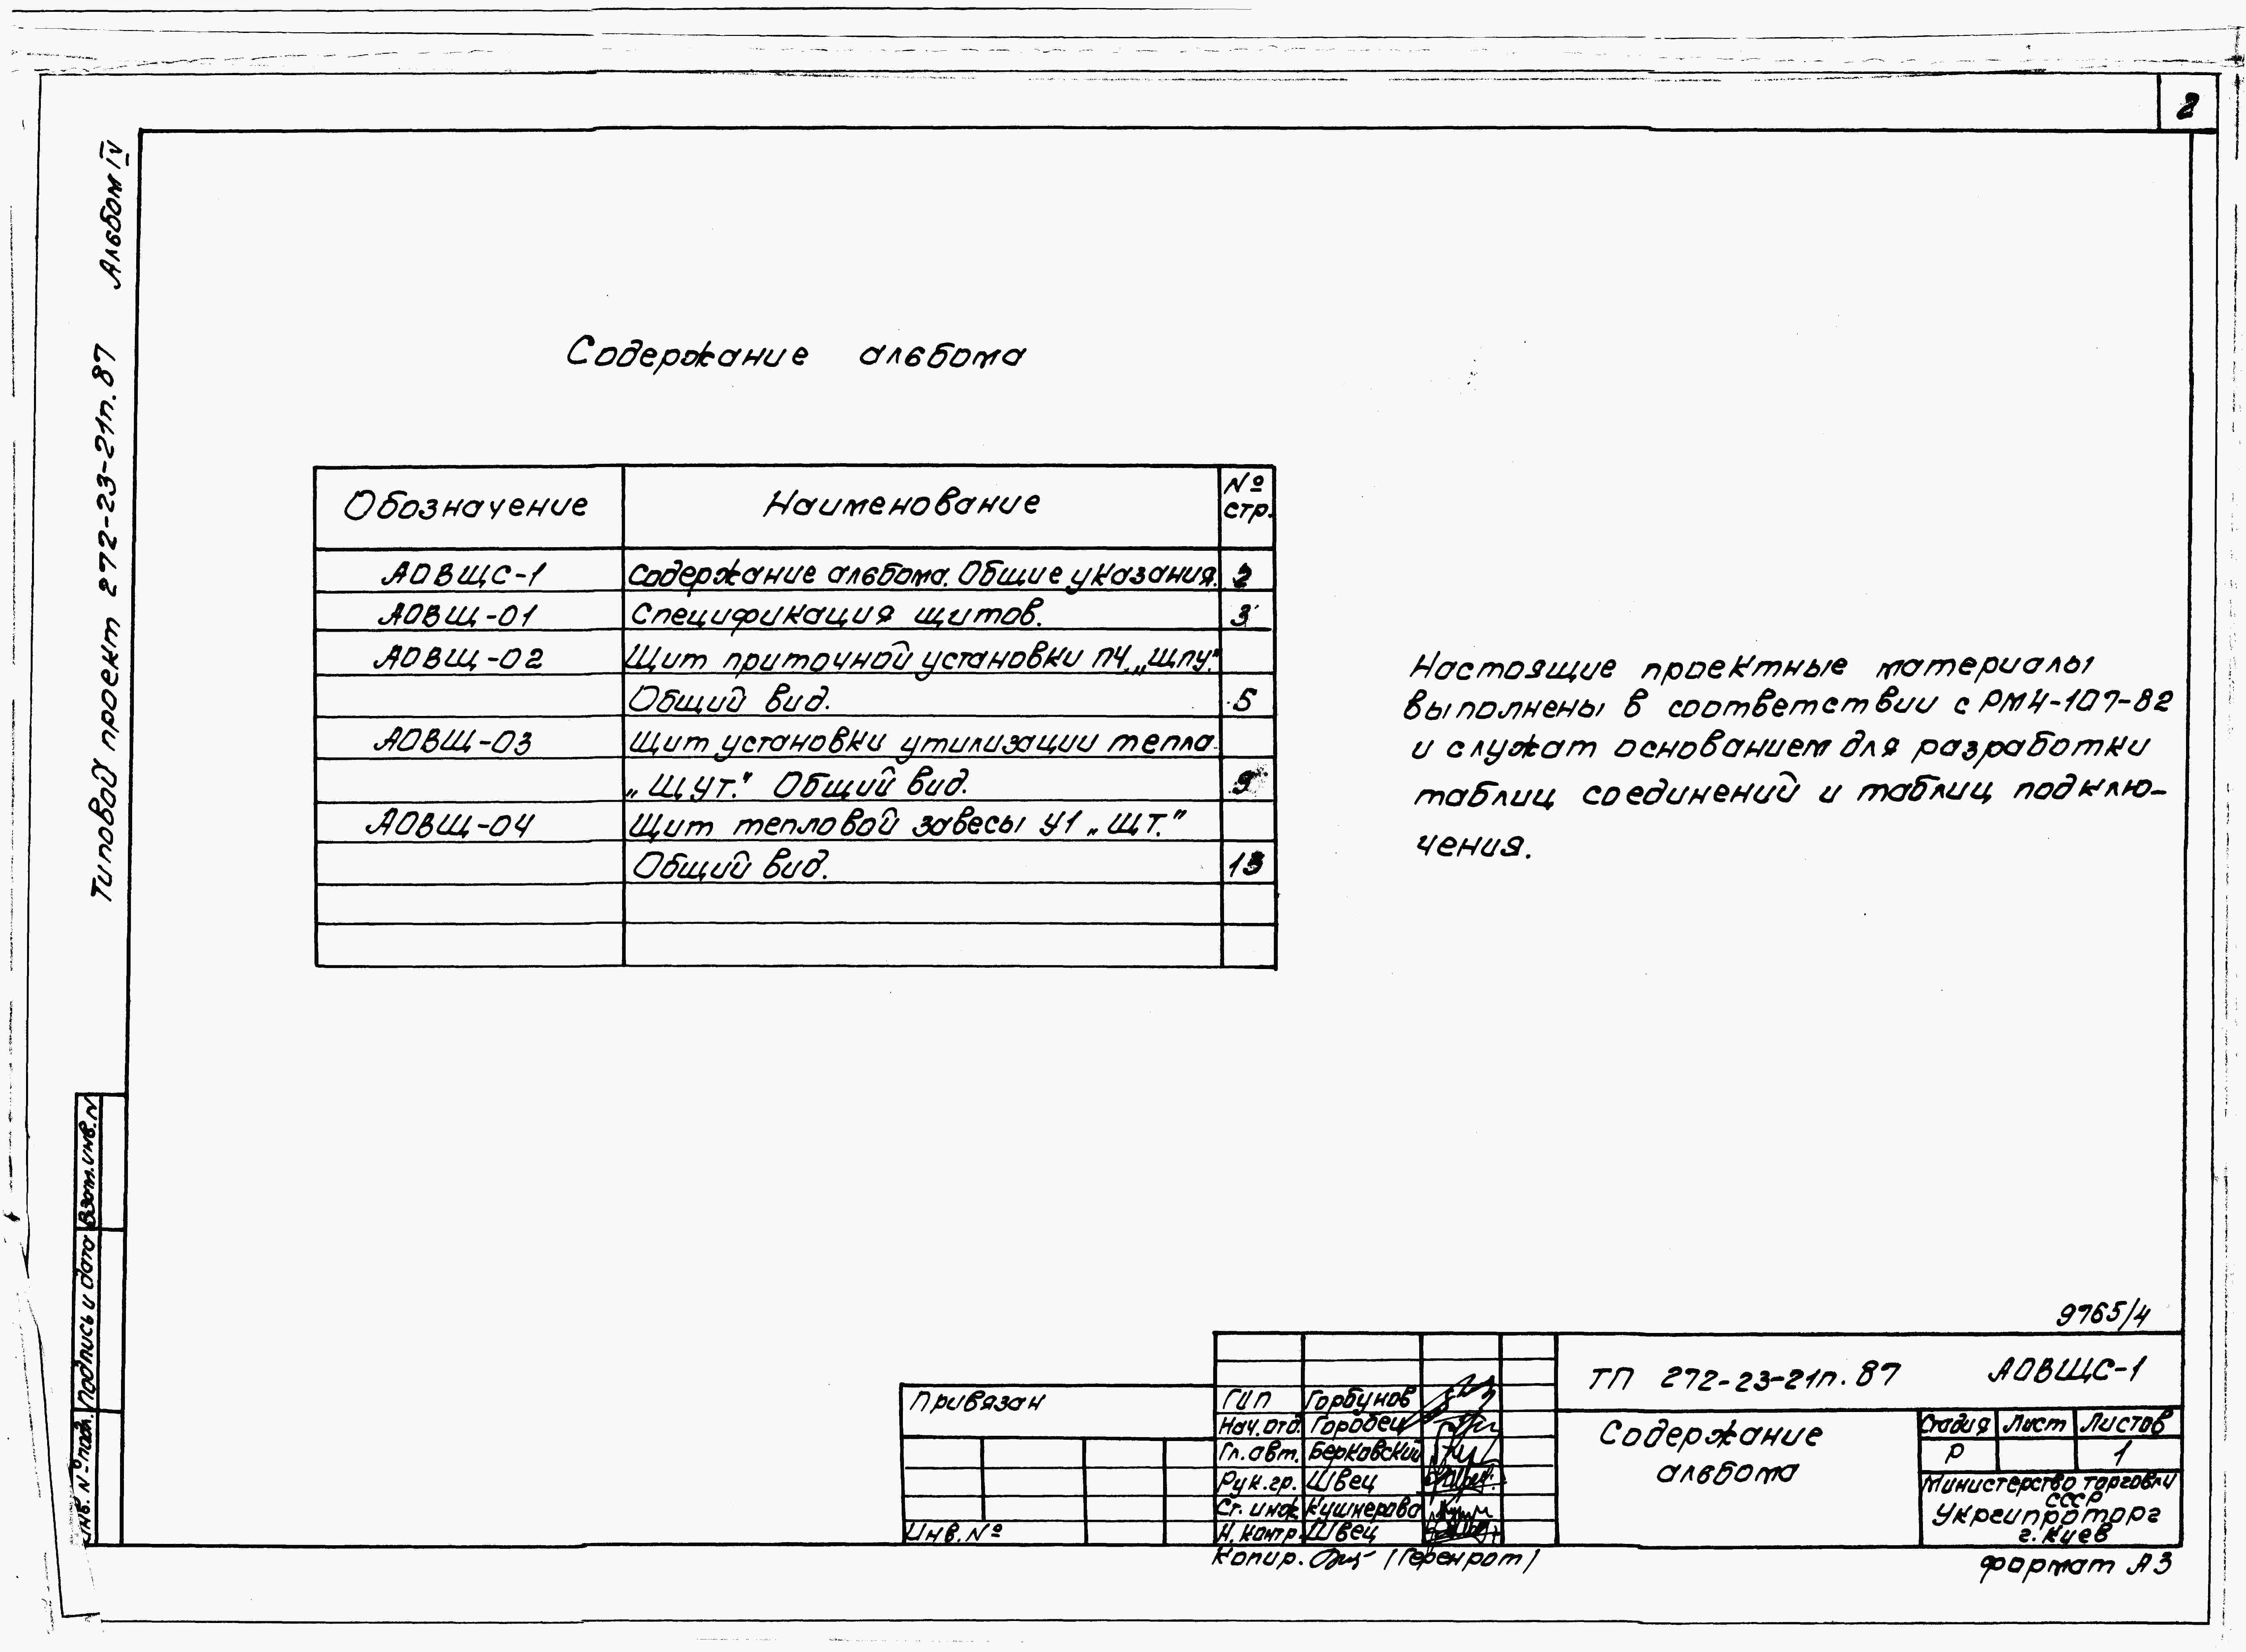 2
Альбом IV
Типовой проект 272-23-21п.87
Содержание альбома
Обозначение Наименование № стр.
АОВЩС-1 Содержание альбома. Общие указания. 2
АОВЩ-01 Спецификация щитов. 3
АОВЩ-02 Щит приточной установки П4 „ЩПУ."
Общий вид. 5
АОВЩ-03 Щит установки утилизации тепла
„ЩУТ." Общий вид. 9
АОВЩ-04 Щит тепловой завесы У1 „ЩТ."
Общий вид. 13
Настоящие проектные материалы
выполнены в соответствии с РМ4-107-82
и служат основанием для разработки
таблиц соединений и таблиц подклю-
чения.
Взам. инв. N
Подпись и дата
Инв. № подл.
9765/4
ТП 272-23-21п.87 АОВЩС-1
Привязан
Инв. №
ГИП Горбунов
Нач. отд. Горобец
Гл. авт. Берковский
Рук. гр. Швец
Ст. инж. Кушнерова
Н. контр. Швец
Содержание
альбома
Стадия Лист Листов
Р 1
Министерство торговли
СССР
Укргипроторг
г. Киев
Копир. (Геренрот)
формат А3